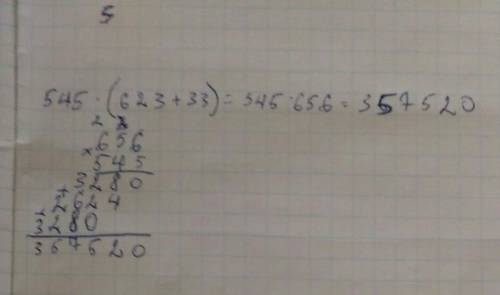 5
545 · (623+33) = 545·656 = 357520
2 3
656
×
545
3280
2624
3280
357520